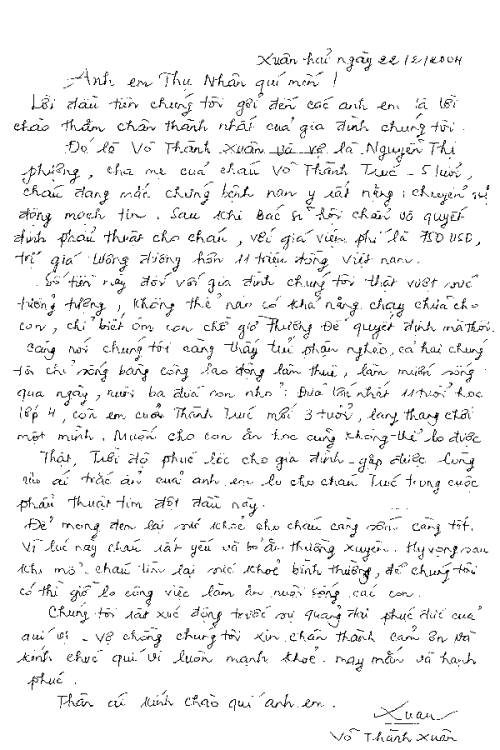 Xuân huế ngày 22/2/2004
Anh em Thu Nhân quí mến !
Lời đầu tiên chúng tôi gởi đến các anh em là lời
chào thăm chân thành nhất của gia đình chúng tôi.
Đó là Võ Thành Xuân và vợ là Nguyễn Thị
phượng, cha mẹ của cháu Võ Thành Trúc - 5 tuổi,
cháu đang mắc chứng bệnh nan y rất nặng : chuyển vị
động mạch tim. Sau khi Bác sĩ hội chẩn và quyết
định phẩu thuật cho cháu, với giá viện phí là 750 USD,
trị giá tương đương hơn 11 triệu đồng việt nam.
Số tiền này đối với gia đình chúng tôi thật vượt sức
tưởng tượng, không thể nào có khả năng chạy chữa cho
con, chỉ biết ôm con chờ giờ Thượng Đế quyết định mà thôi.
Càng nói chúng tôi càng thấy tủi phận nghèo, cả hai chúng
tôi chỉ sống bằng công lao động làm thuê, làm mướn sống
qua ngày, nuôi ba đứa con nhỏ : Đứa lớn nhất 11 tuổi học
lớp 4, còn em của Thành Trúc mới 3 tuổi, lang thang chơi
một mình. Muốn cho con ăn học cũng không thể lo được
Thật, Trời đổ phúc lộc cho gia đình - gặp được lòng
ưu ái trắc ẩn của anh em lo cho cháu Trúc trong cuộc
phẩu thuật tim đợt đầu này.
Để mong đem lại sức khoẻ cho cháu càng sớm càng tốt.
Vì lúc này cháu rất yếu và bỏ ăn thường xuyên. Hy vọng sau
khi mổ cháu tìm lại sức khoẻ bình thường, để chúng tôi
có thì giờ lo công việc làm ăn nuôi sống các con.
Chúng tôi rất xúc động trước sự quảng đại phúc đức của
quí vị - vợ chồng chúng tôi xin chân thành cảm ơn và
kính chúc quí vị luôn mạnh khoẻ. may mắn và hạnh
phúc.
Thân ái kính chào quí anh em.
Xuân
Võ Thành Xuân